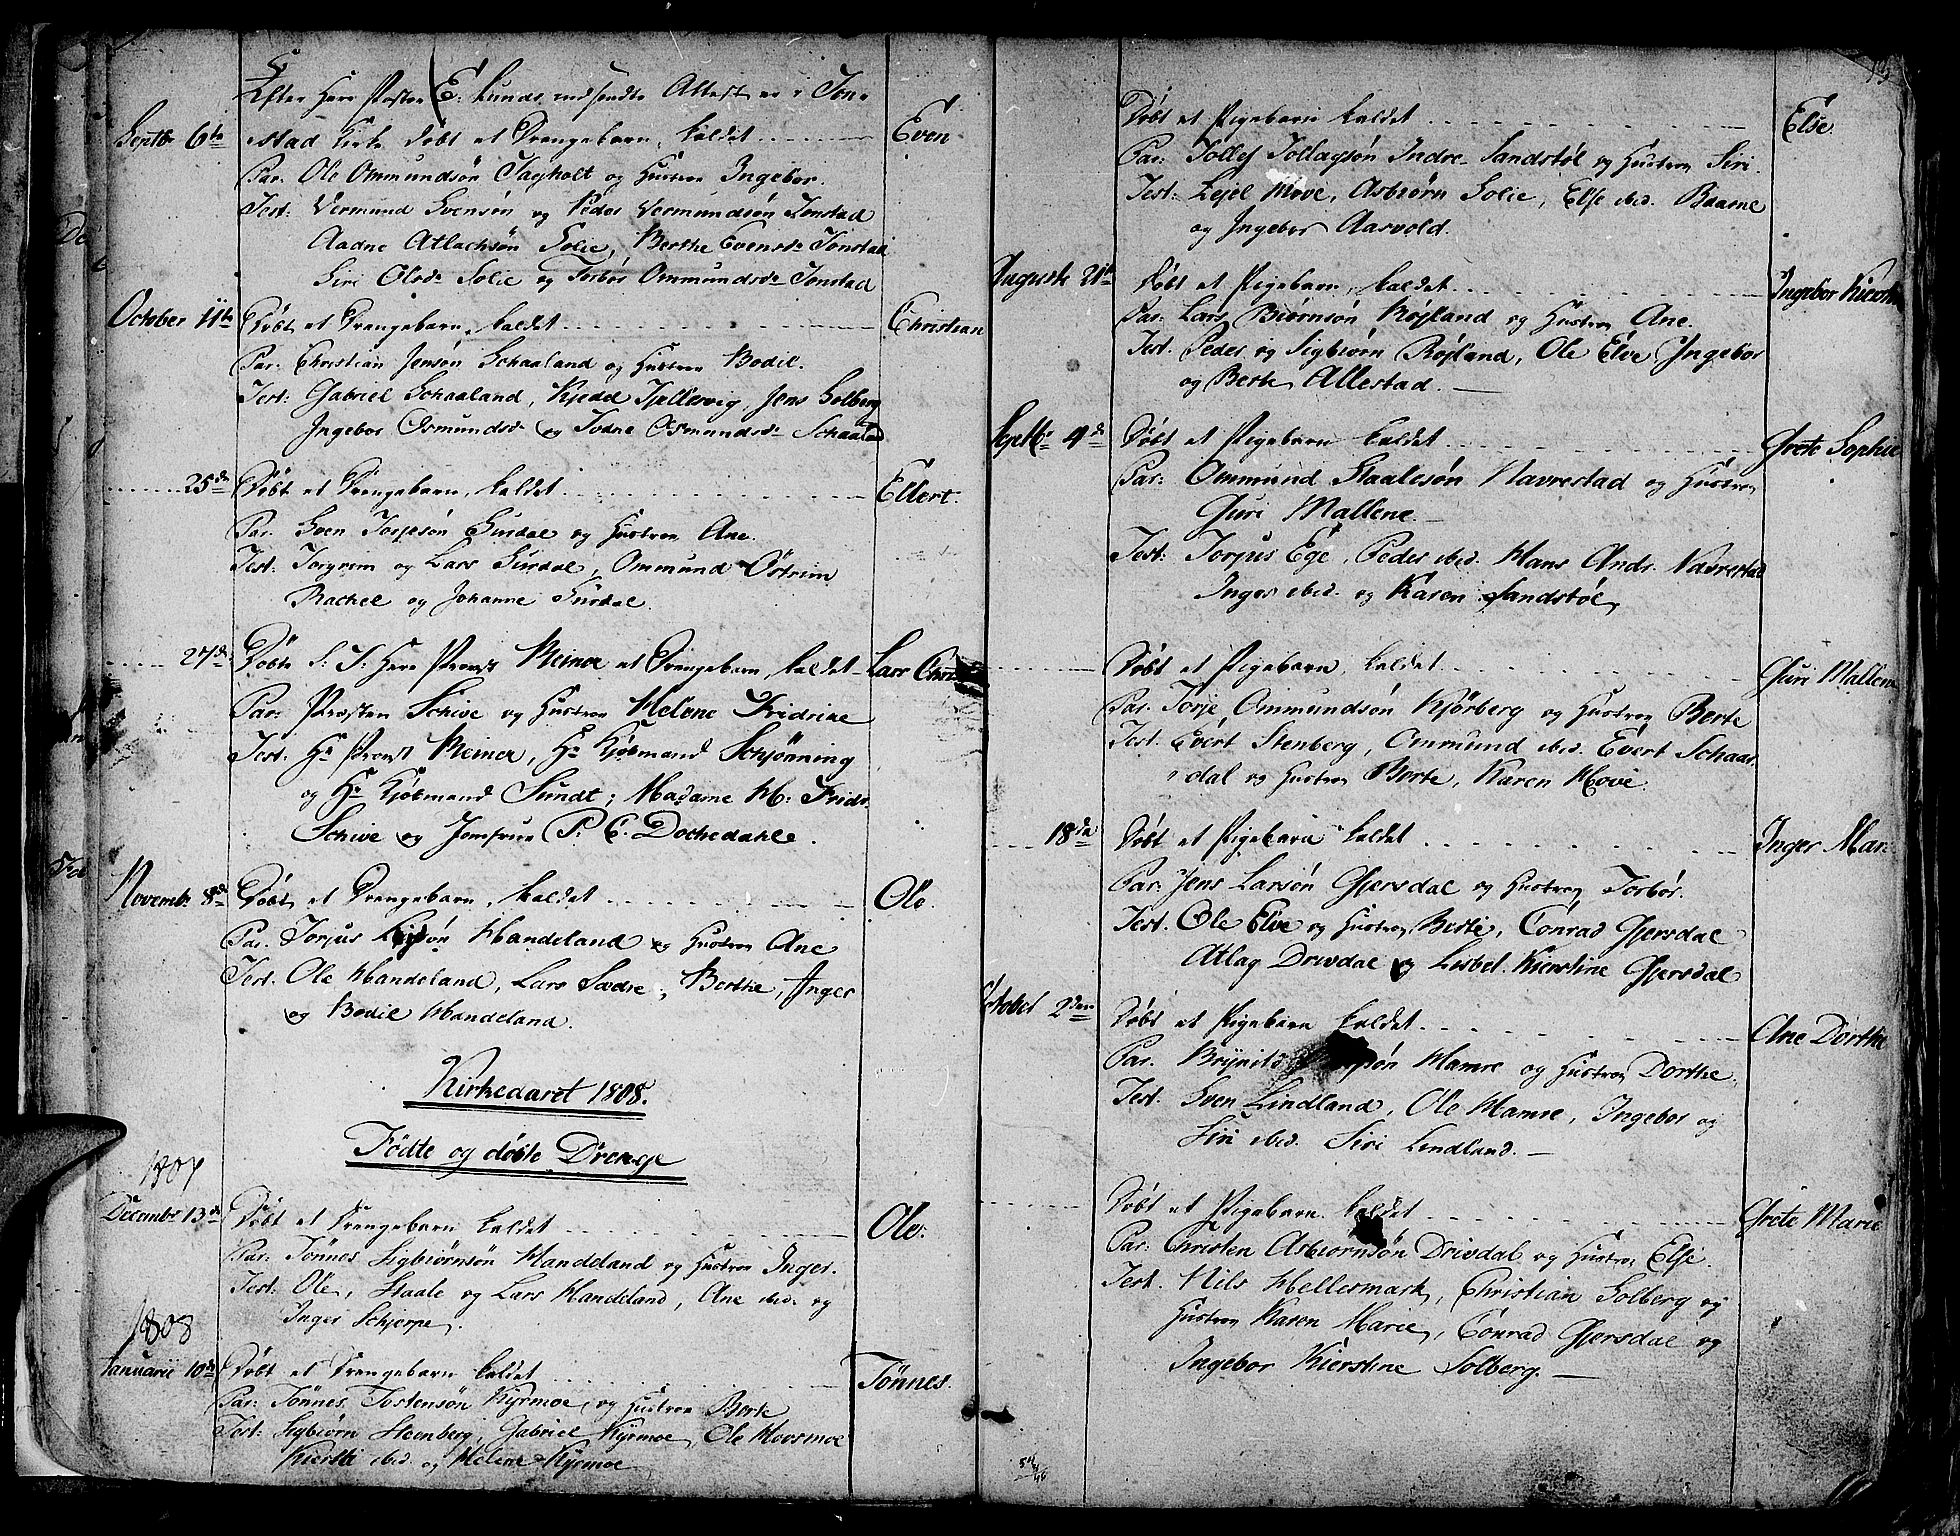 Efter Herr Pasten E: Lunds indsendte Attest er i Jon-
Septbr 6te stad Kirke døbt et Drengebarn, kaldet Even
Par. Ole Ommundsøn Tagholt og Hustroe Ingebor.
Test: Vermund Svensøn og Peder Vermundsøn Jonstad
Aadne Atlachsøn Solie, Berthe Evensd. Jonstad
Siri Olsd. Solie og Torbor Ommundsd. Jonstad
October 11te Døbt et Drengebarn, kaldet Christian
Par: Christian Jensøn Schaaland og Hustroe Bodil.
Test: Gabriel Schaaland, Kjedel Tjellesvig, Jens Solberg
Ingebor Osmundsd. og Jodne Osmundsd. Schaaland
25de Døbt et Drengebarn, kaldet Ellert.
Par. Sven Torjesøn Surdal og Hustroe Ane.
Test: Torgrim og Lars Surdal, Ommund Østrem
Rachel og Johanne Surdal.
27de Døbte S: T: Herr Provst Meinor et Drengebarn, kaldet Lars Chri
Par: Præsten Schive og Hustroe Helene Fridrine
Test. Hr Provst Meiner, Hr Kjøbmand Schjønning
og Hr Kjøbmand Sundt; Madame M: Fridr.
Schive og Jomfrue P. C. Dochedahl.
Novembr 8de Døbt et Drengebarn, kaldet Ole.
Par. Torjus Handeland og Hustroe Ane
Test. Ole Handeland, Lars Sædre, Berthe, Inger
og Bodil Handeland.
Kirkeaaret 1808.
Fødte og døbte Drenge
1807
Decembr 13de Døbt et Drengebarn kaldet Ole.
Par: Tønnes Sigbiørnsøn Handeland og Hustroe Inger.
Test: Ole, Staale og Lars Handeland, Ane ibid. og
Inger Schjerpe.
1808
Januarii 10de Døbt et Drengebarn kaldet Tønnes.
Par: Tønnes Tostensøn Kyrmoe, og Hustroe Berte
Test: Sigbiørn Steenberg, Gabriel Kyrmoe, Ole Moesmoe
Kiersti ibid. og Helene Kyrmoe
Døbt et Pigebarn kaldet Else.
Par: Tollef Tollagsøn Indre Sandstøl og Hustroe Siri.
Test: Lejel Move, Asbiørn Solie, Else ibid. Baarne
og Ingebor Aarvold.
Augusti 21te Døbt et Pigebarn, kaldet Ingebor Kierstin
Par: Lars Biørnsøn Røjland og Hustroe Ane.
Test. Peder og Sigbiørn Røjland, Ole Elve, Ingebor
og Berte Allestad.
Septbr 4de Døbt et Pigebarn kaldet Grete Sophie
Par: Ommund Staalesøn Navrestad og Hustroe
Guri Mallene.
Test: Torjus Ege, Peder ibid. Hans Ands. Navrestad
Inger ibid. og Karen Sandstøl,
Døbt et Pigebarn, kaldet Guri Mallene
Par. Torje Ommundsøn Kjørberg og Hustroe Berte
Test: Evert Stenberg, Ommund ibid. Evert Schaar-
dal og Hustroe Berte, Karen Move.
18de Døbt et Pigebarn kaldet Inger Mar:
Par: Jens Larsøn Gjersdal og Hustroe Torbor.
Test. Ole Elve og Hustroe Berte, Conrad Gjersdal
Atlag Drivdal og Lisbel. Kierstine Gjersdal
October 2den Døbt et Pigebarn kaldet Ane Dorthe
Par. Brynild Hamre og Hustroe Dorthe,
Test. Sven Lindland, Ole Hamre, Ingebor og
Siri ibid. Siri Lindland.
Døbt et Pigebarn kaldet Grete Marie
Par: Christen Asbiørnsøn Drivdal og Hustroe Else.
Test. Nils Hellesmark, Christian Solberg og
Hustroe Karen Marie, Conrad Gjersdal og
Ingebor Kierstine Solberg.